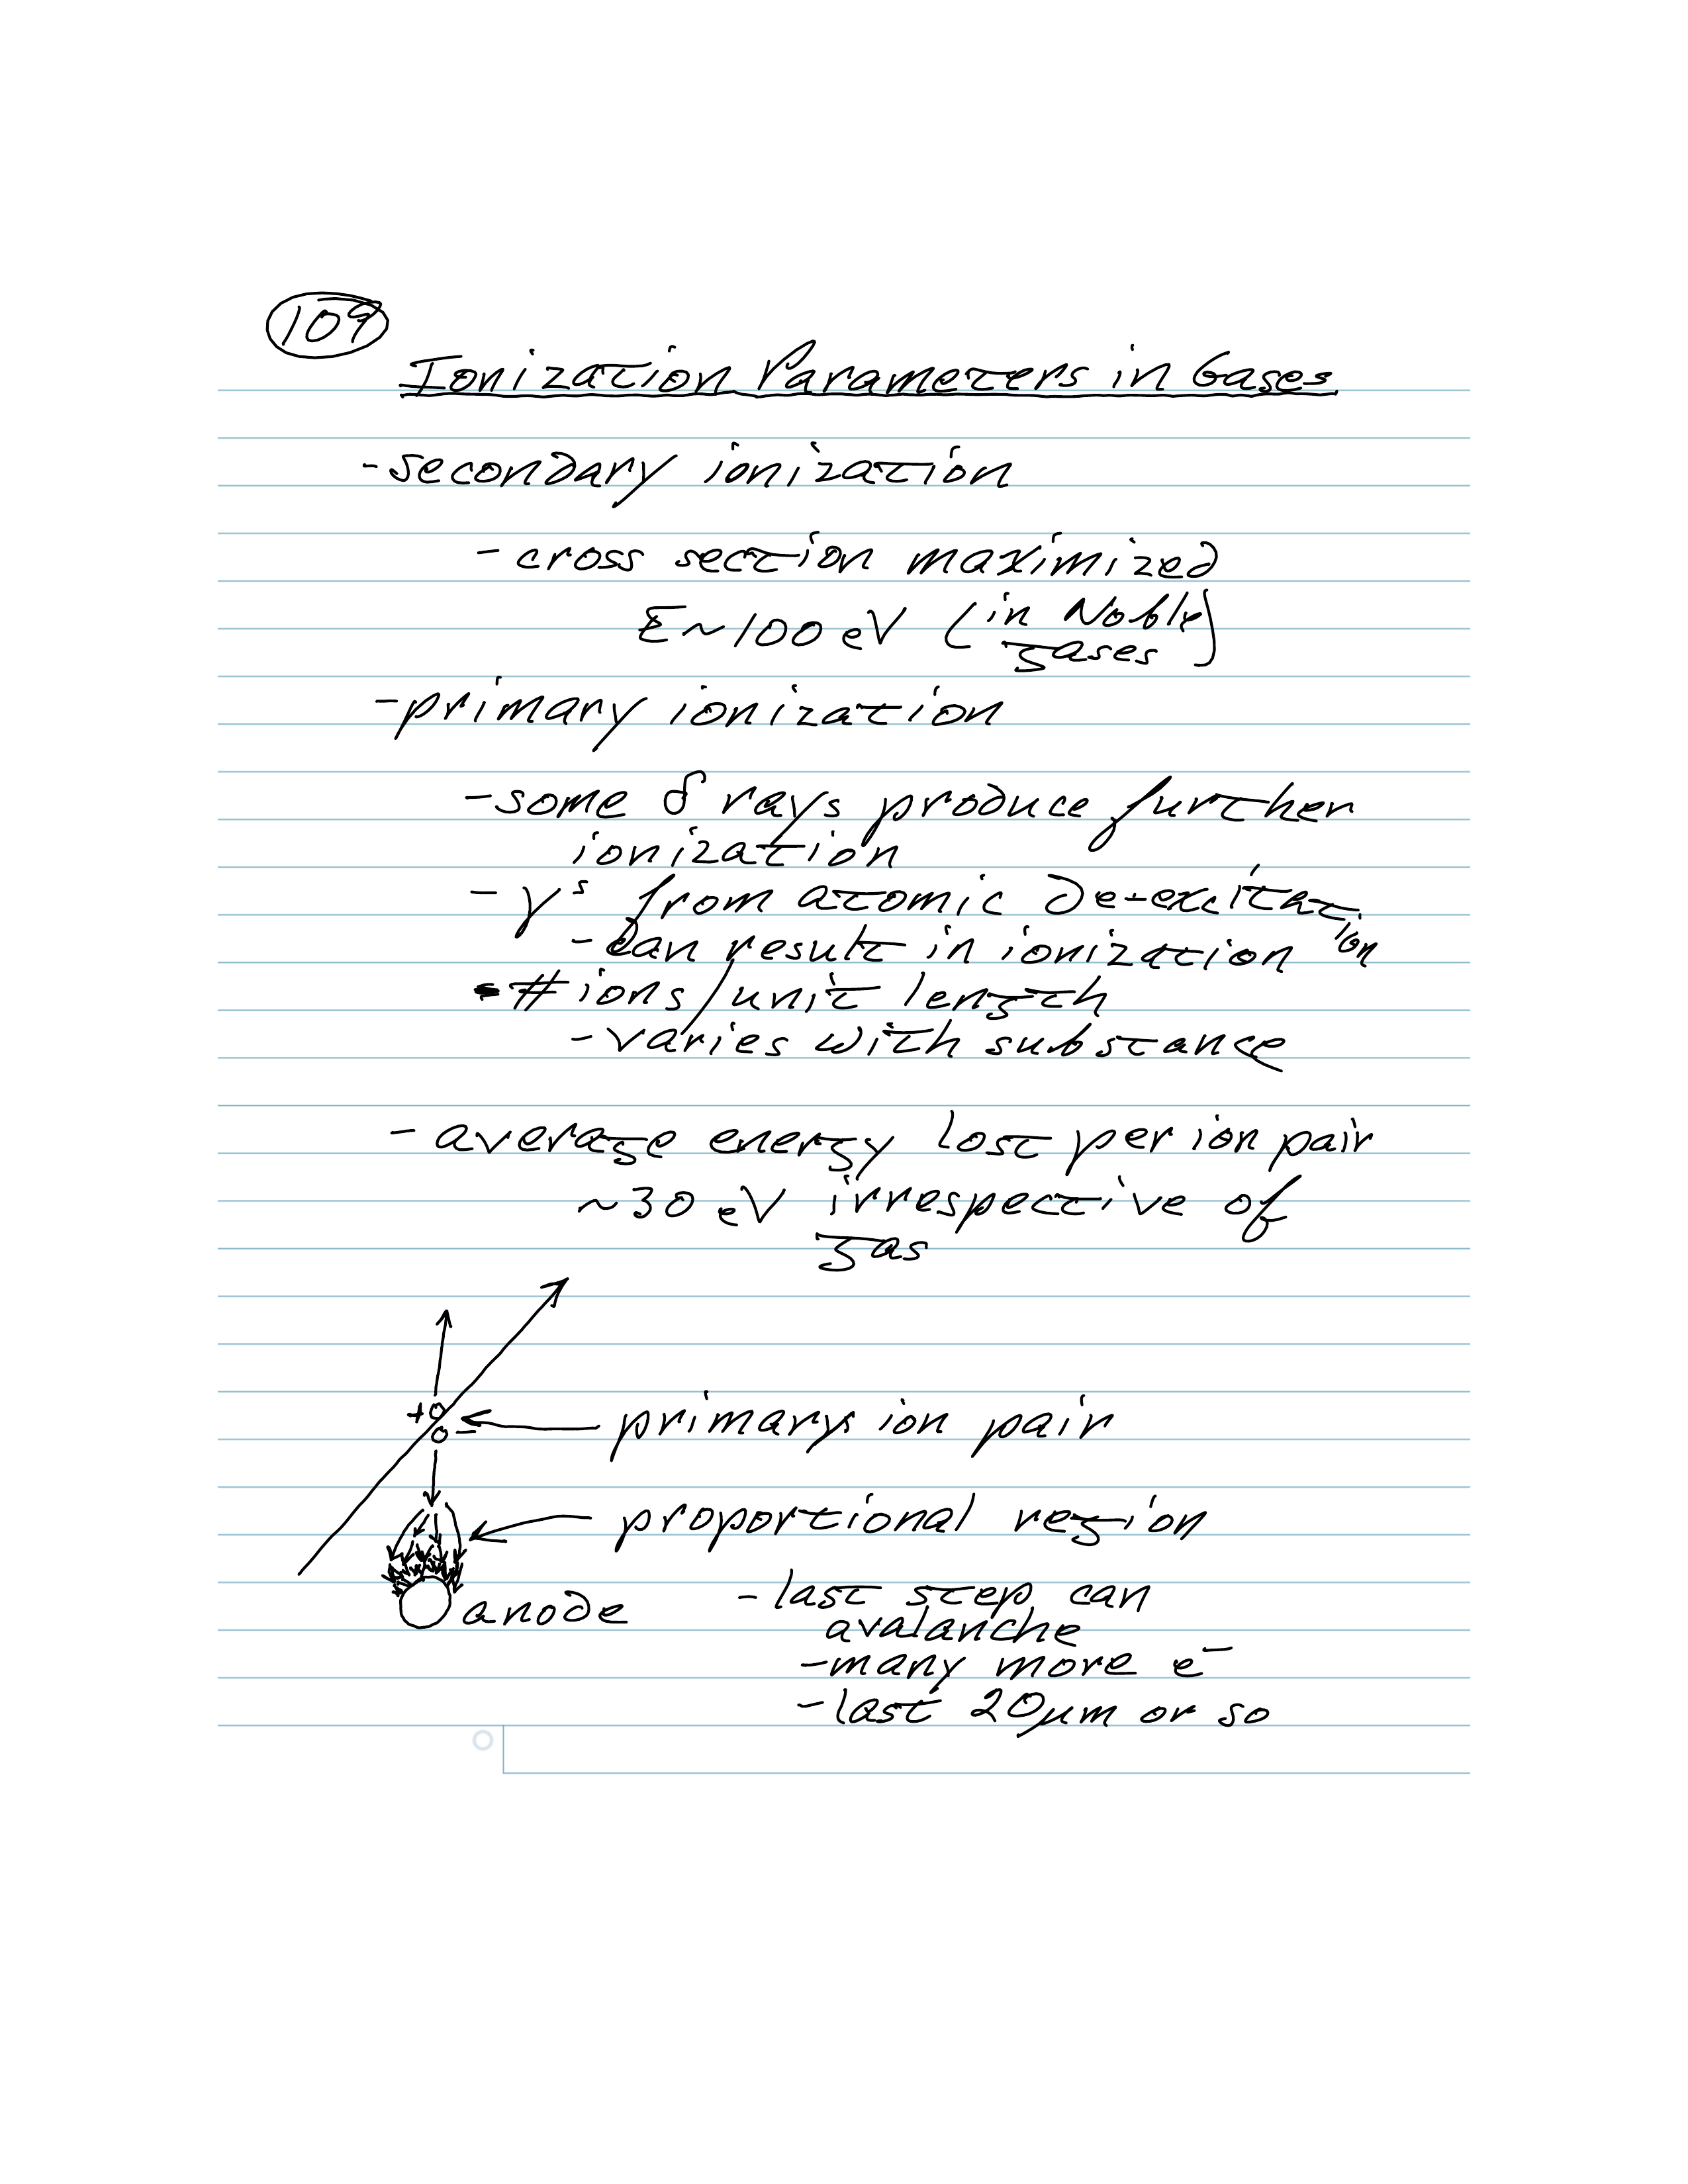 109
Ionization Parameters in Gases
- secondary ionization
- cross section maximized
E ~ 100 eV (in Noble
gases)
- primary ionization
- some δ rays produce further
ionization
- γ's from atomic de-excitation
- can result in ionization
- # ions/unit length
- varies with substance
- average energy lost per ion pair
~30 eV irrespective of
gas
+
- primary ion pair
proportional region
anode
- last step can
avalanche
- many more e⁻
- last 20 μm or so